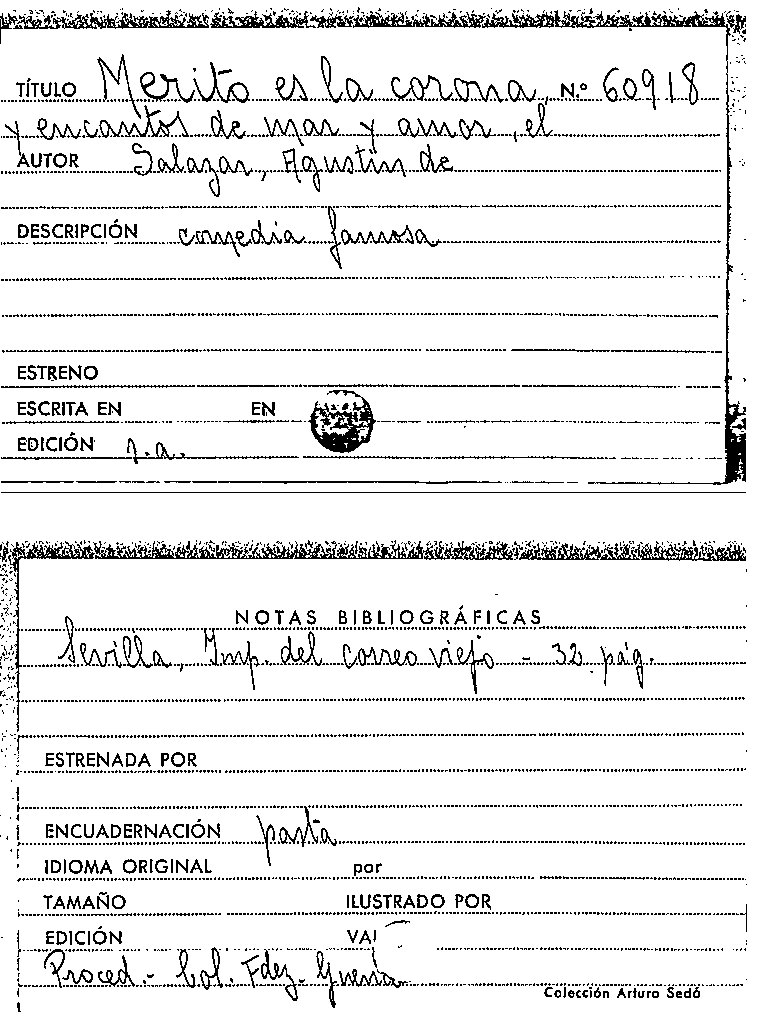 TÍTULO Merito es la corona, N.º 60918
y encantos de mar y amor, el
AUTOR Salazar, Agustín de
DESCRIPCIÓN comedia famosa
ESTRENO
ESCRITA EN EN
EDICIÓN s.a.
NOTAS BIBLIOGRÁFICAS
Sevilla, Imp. del correo viejo - 32 pág.
ESTRENADA POR
ENCUADERNACIÓN pasta
IDIOMA ORIGINAL por
TAMAÑO ILUSTRADO POR
EDICIÓN VAL
Proced.- Col. Fdez.- Guerra
Colección Arturo Sedó